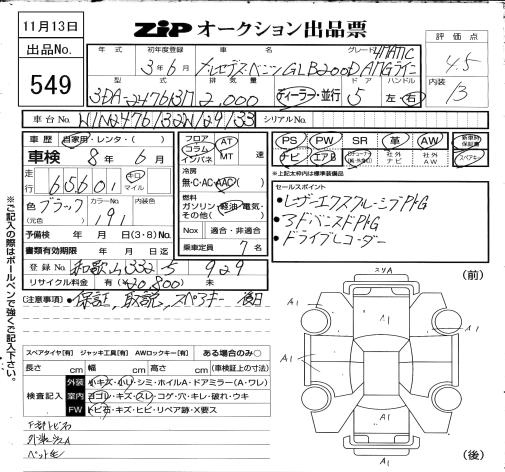 11月13日
ZIP オークション出品票
出品No.
549
評価点
4.5
内装
B
年式 初年度登録 車名 グレード
3年6月 メルセデス・ベンツ GLB200D 4MATIC AMGライン
型式 排気量 ハンドル ドア
3DA-247613M 2,000 ディーラー・並行 5 左・右
車台No. シリアルNo.
車歴 自家用・レンタ・( )
車検 8年6月
走行 65601 キロ マイル
色 ブラック カラーNo. 191 内装色
(元色)
予備検 年 月 日(3・8)No.
書類有効期限 年 月 日迄
登録No. 和歌山 332 929
リサイクル料金 (有) ¥20,800) 未
フロア コラム インパネ AT MT 速
冷房
無・C・AC・AAC( )
燃料
ガソリン・軽油・電気・その他( )
Nox 適合・非適合
乗車定員 7名
PS PW SR 革 AW 新車時保証書
ナビ エアB 社外ナビ 社外AW スペアキー
*上記太枠内は標準装備品
セールスポイント
・レザーエクスクルーシブPKG
・ドライブレコーダー
(注意事項)・保証、取説、スペアキー 後日
※ご記入の際はボールペンで強くご記入下さい。
スペアタイヤ[有] ジャッキ工具[有] AWロックキー[有] ある場合のみ○
長さ cm 幅 cm 高さ cm (車検証上の寸法)
検査記入
外装 小キズ・小U・シミ・ホイルA・ドアミラー(A・ワレ)
室内 ヨゴレ・キズ・スレ・コゲ・穴・キレ・破れ・ウキ
FW トビ石・キズ・ヒビ・リペア跡・X要ス
(前)
スリA
A1
A1
A1
A1
A1
A1
(後)